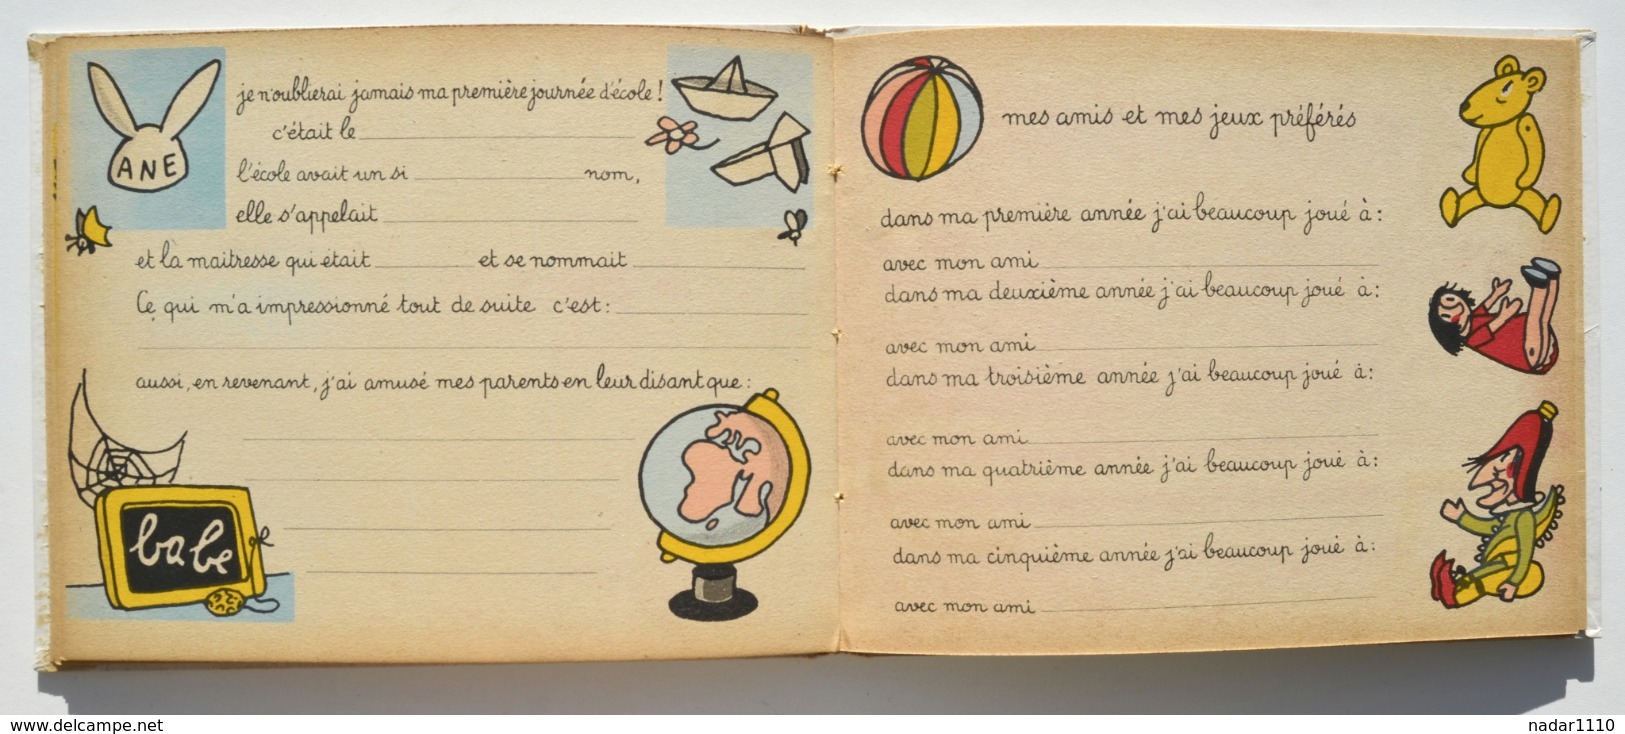 ANE
je n'oublierai jamais ma première journée d'école !
c'était le
l'école avait un si nom,
elle s'appelait
et la maitresse qui était et se nommait
Ce qui m'a impressionné tout de suite c'est :
aussi, en revenant, j'ai amusé mes parents en leur disant que :
babe
mes amis et mes jeux préférés
dans ma première année j'ai beaucoup joué à :
avec mon ami
dans ma deuxième année j'ai beaucoup joué à :
avec mon ami
dans ma troisième année j'ai beaucoup joué à :
avec mon ami
dans ma quatrième année j'ai beaucoup joué à :
avec mon ami
dans ma cinquième année j'ai beaucoup joué à :
avec mon ami
www.delcampe.net
nadar1110